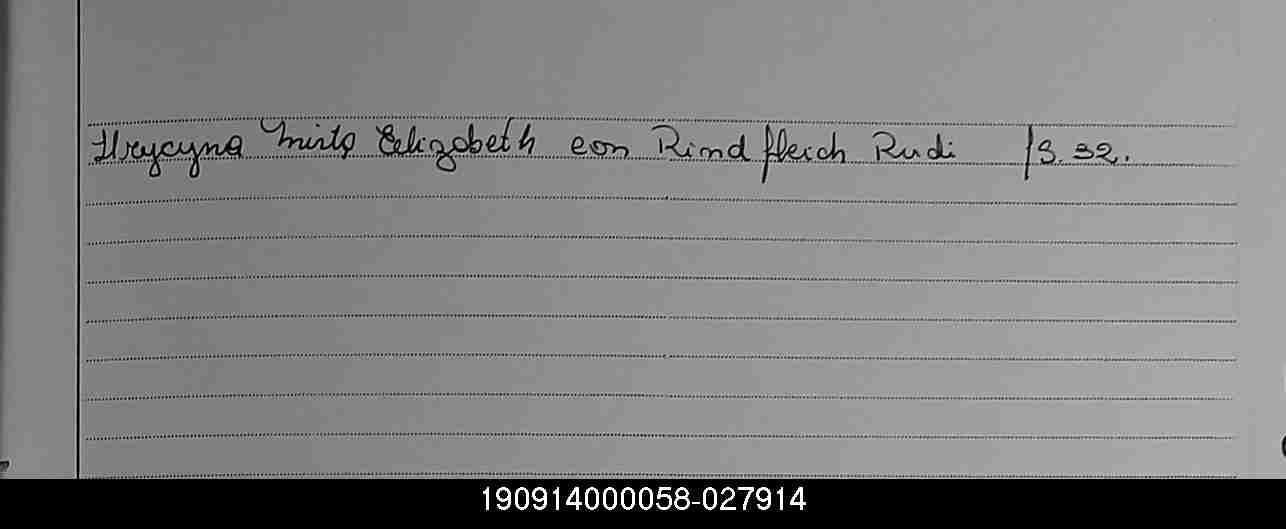 Hrycyna Mirta Elizabeth con Rindfleich Rudi /S. 32.
190914000058-027914